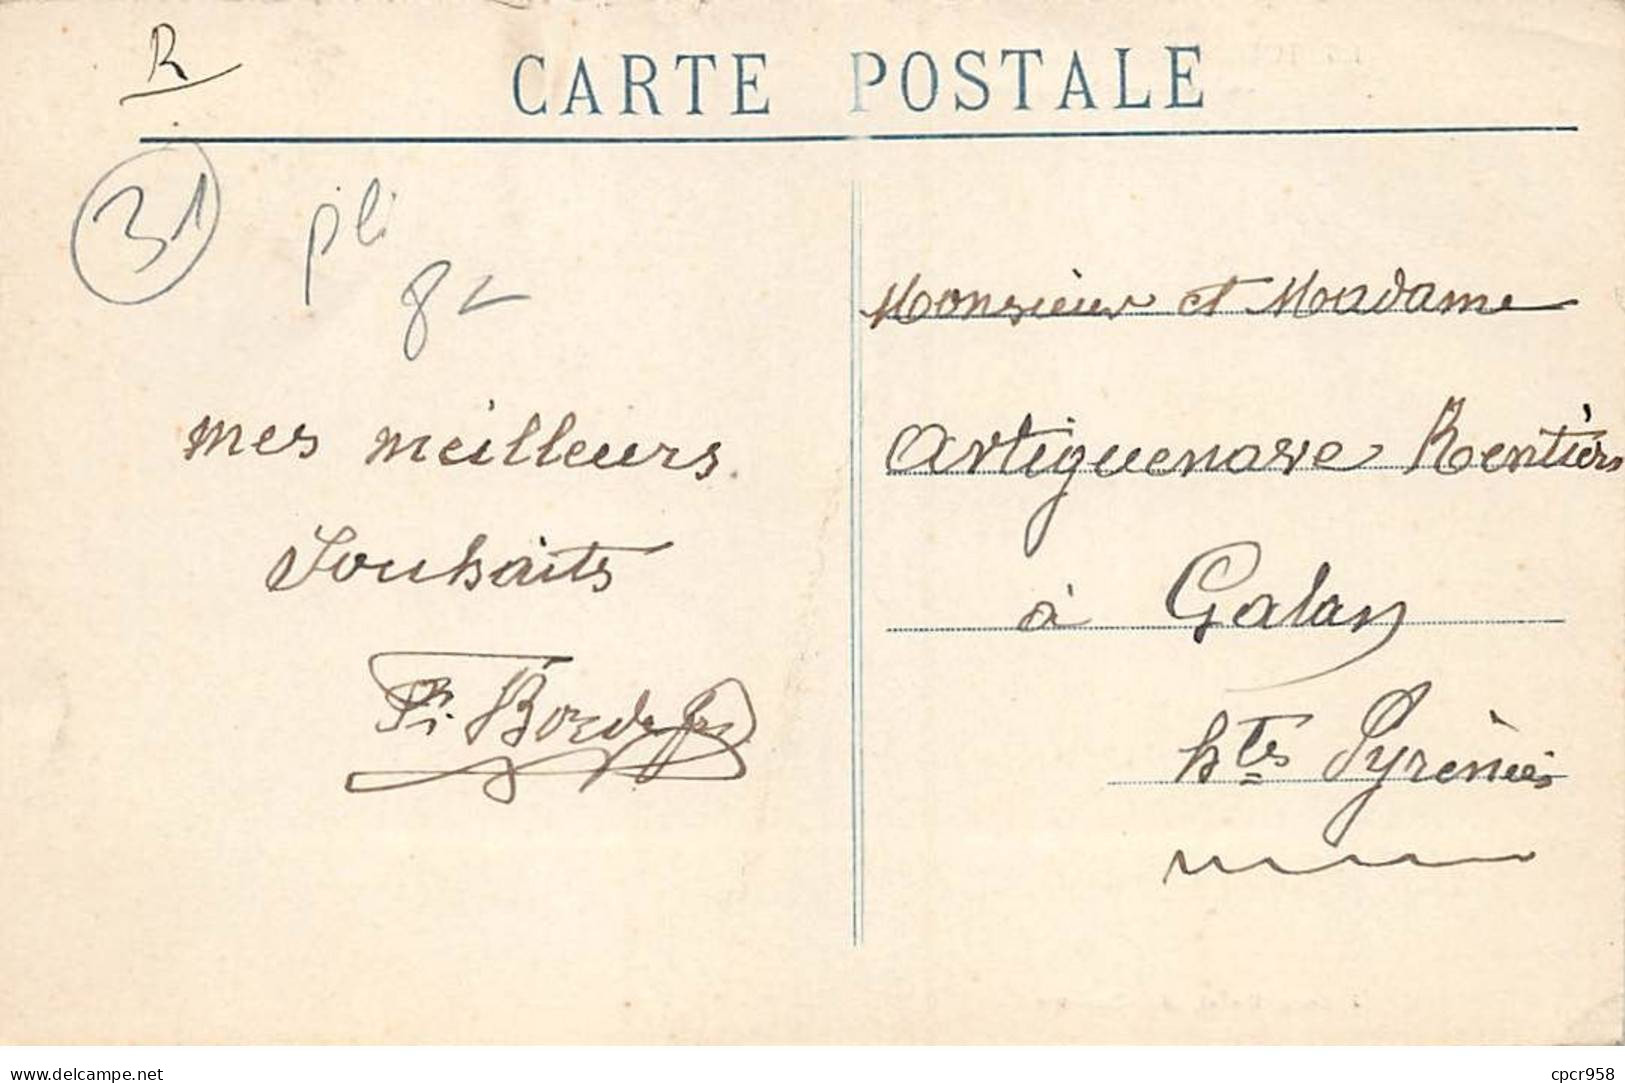 R
CARTE POSTALE
31
pli
82
mes meilleurs
Souhaits
Monsieur et Madame
Artiguenave Rentiers
à Galan
htes Pyrénées
www.delcampe.net
cpcr958